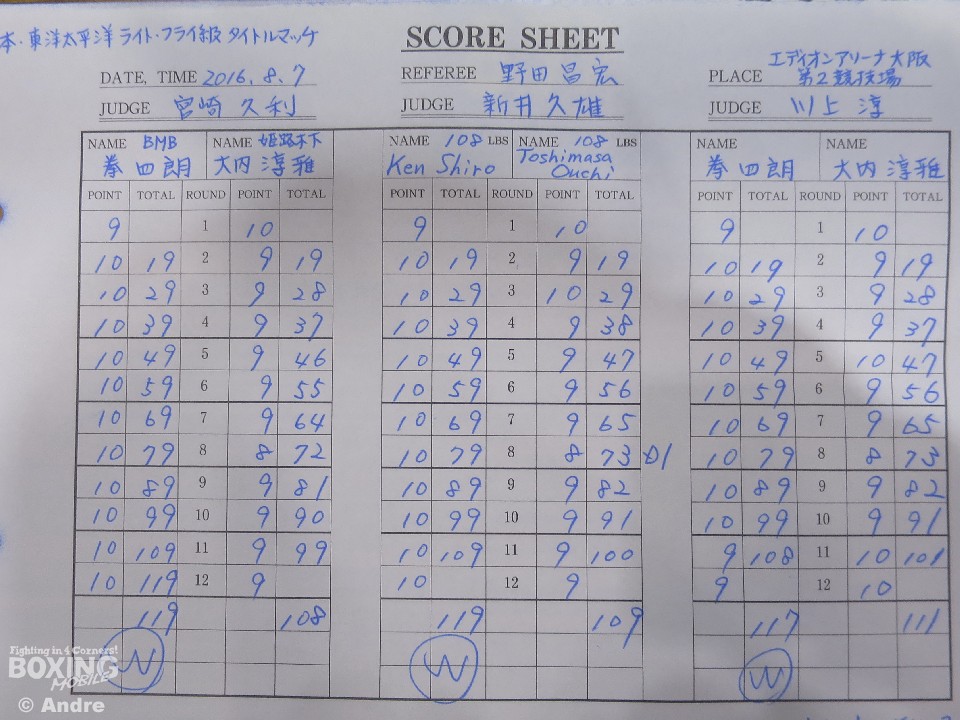 本・東洋太平洋ライト・フライ級 タイトルマッチ
SCORE SHEET
DATE, TIME 2016. 8. 7 REFEREE 野田昌宏 PLACE エディオンアリーナ大阪
第2競技場
JUDGE 宮崎久利 JUDGE 新井久雄 JUDGE 川上淳
NAME BMB NAME 姫路木下 NAME 108 LBS NAME 108 LBS NAME NAME
拳四朗 大内淳雅 Ken Shiro Toshimasa Ouchi 拳四朗 大内淳雅
POINT TOTAL ROUND POINT TOTAL POINT TOTAL ROUND POINT TOTAL POINT TOTAL ROUND POINT TOTAL
9 1 10 9 1 10 9 1 10
10 19 2 9 19 10 19 2 9 19 10 19 2 9 19
10 29 3 9 28 10 29 3 10 29 10 29 3 9 28
10 39 4 9 37 10 39 4 9 38 10 39 4 9 37
10 49 5 9 46 10 49 5 9 47 10 49 5 10 47
10 59 6 9 55 10 59 6 9 56 10 59 6 9 56
10 69 7 9 64 10 69 7 9 65 10 69 7 9 65
10 79 8 8 72 10 79 8 8 73 D1 10 79 8 8 73
10 89 9 9 81 10 89 9 9 82 10 89 9 9 82
10 99 10 9 90 10 99 10 9 91 10 99 10 9 91
10 109 11 9 99 10 109 11 9 100 9 108 11 10 101
10 119 12 9 10 12 9 9 12 10
119 108 119 109 117 111
W W W
Fighting in 4 Corners!
BOXING
MOBILE
© Andre